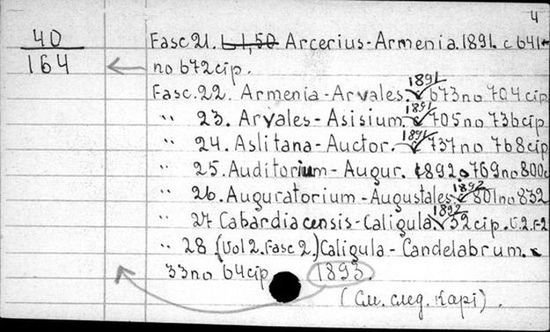 4
40
164
Fasc 21. L 1,50 Arcerius-Armenia. 1891. с 641-
по 672 стр.
Fasc. 22. Armenia-Arvales. 1891 с 673 по 704 стр
" 23. Arvales-Asisium. 1891 с 705 по 736 стр
" 24. Aslitana-Auctor. 1891 с 737 по 768 стр
" 25. Auditorium-Augur. 1892. с 769 по 800 с
" 26. Auguratorium-Augustales 1892 с 801 по 832
" 27 Cabardiacensis-Caligula. 1892 с 32 стр.
" 28 (Vol 2. Fasc 2.) Caligula-Candelabrum. с
33 по 64 стр 1893.
(См. след. карт.)